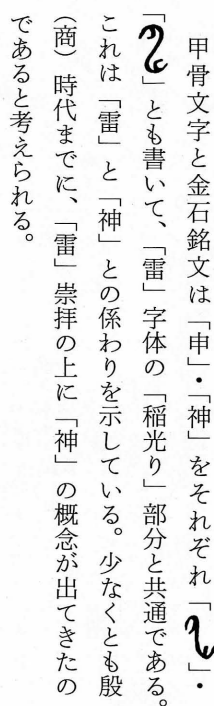 甲骨文字と金石銘文は「申」・「神」をそれぞれ「」・
「」とも書いて、「雷」字体の「稲光り」部分と共通である。
これは「雷」と「神」との係わりを示している。少なくとも殷
（商）時代までに、「雷」崇拝の上に「神」の概念が出てきたの
であると考えられる。